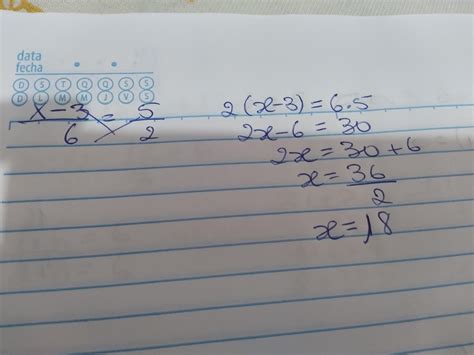 data
fecha
D S T Q Q S S
D L M M J V S
x-3 = 5
6 2
2(x-3)=6.5
2x-6=30
2x=30+6
x=36
2
x=18